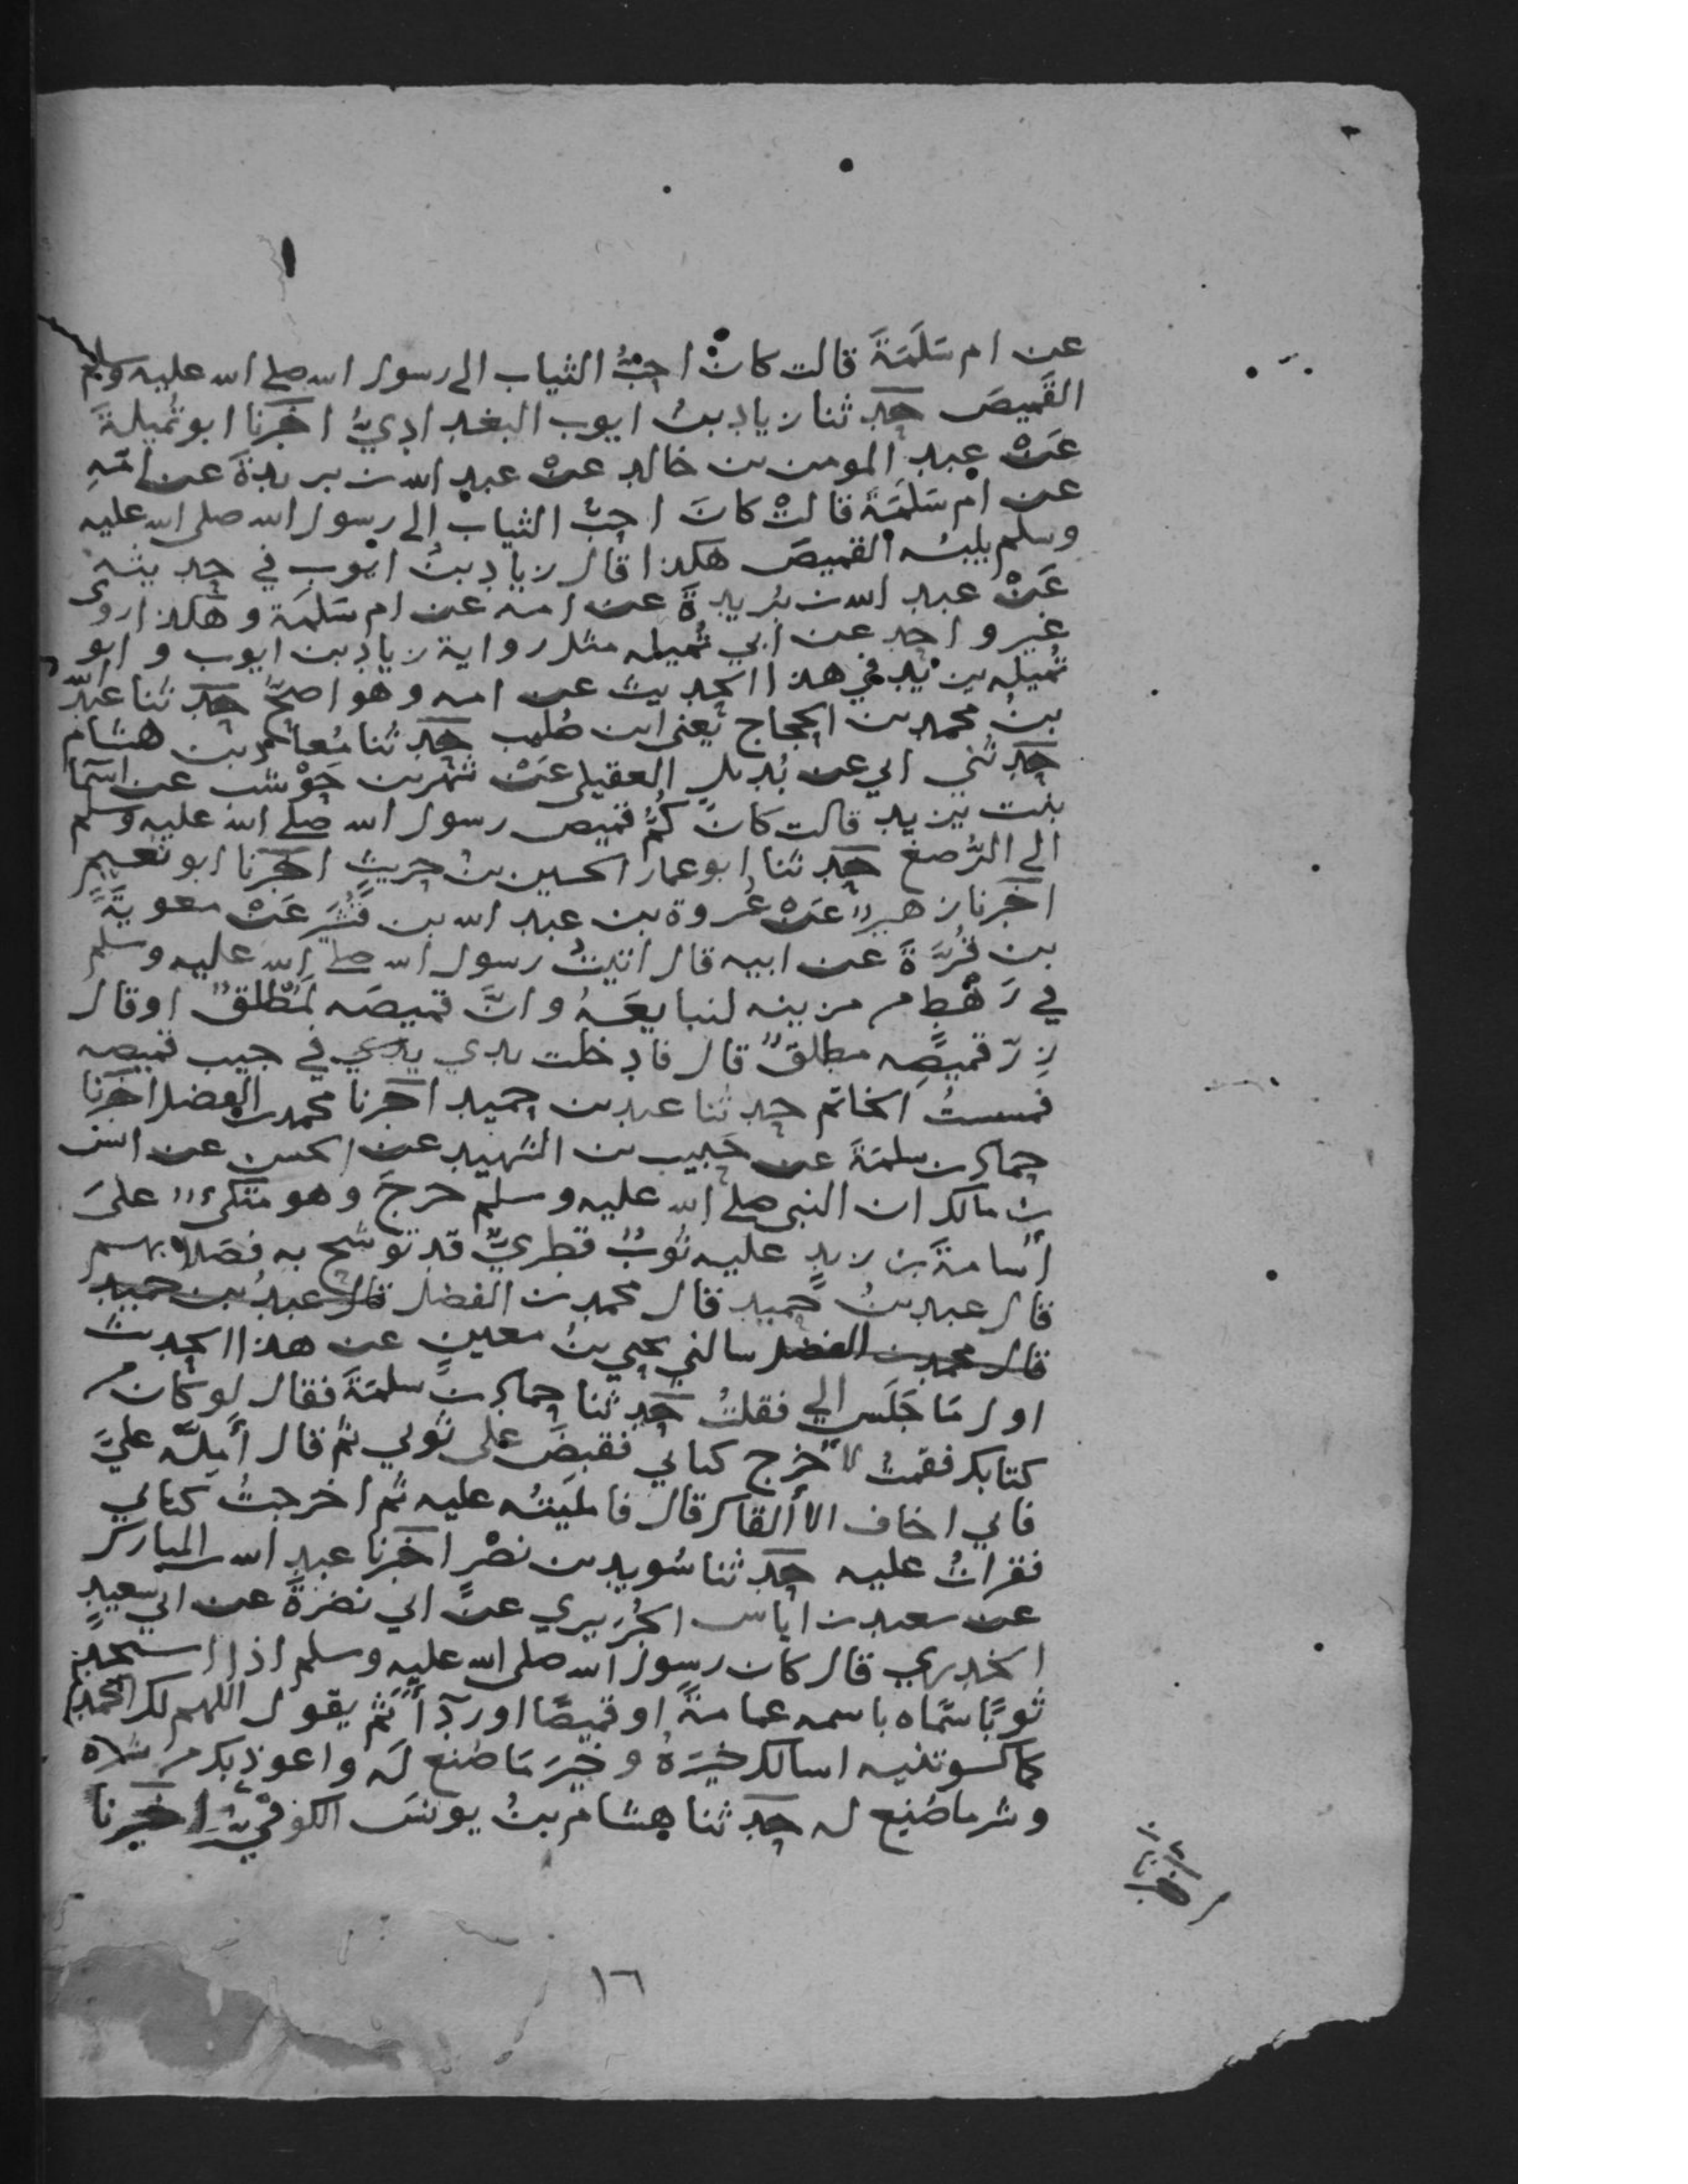 ١
عن ام سَلَمَةَ قالت كانْ احبُّ الثياب الى رسول الله صلى الله عليه وسلم
القميصَ حدثنا زياد بنُ ايوب البغداديُّ اخبرنا ابو تُميلةَ
عَنْ عبد المومن بن خالد عَنْ عبد الله بن بريدةَ عن امّهِ
عن ام سَلَمَةَ قالتْ كانَ احبَّ الثيابْ الى رسول الله صلى الله عليه
وسلم يلبسُه القميصَ هكذا قال زياد بنُ ايوب في حديثه
عَنْ عبد الله بن بُريدةَ عن امه عن ام سَلَمَة وهكذا روى
غير واحد عن ابي تُميله مثل رواية زياد بن ايوب وابو
تُميله يزيد في هذا الحديث عن امه وهو اصحّ حدثنا عبد الله
بنُ محمد بن الحجاج يعنى ابن حدثنا مُعاذ بن هشام
حدثني ابي عن بُديل العقيلى عَنْ شهر بن حَوْشب عن اسما
بنت يزيد قالت كانَ كُمُّ قميص رسول الله صلى الله عليه وسلم
الى الرُّصغ حدثنا ابو عمار الحسين بنُ حريث اخبرنا ابو نعيم
اخبرنا زهيرٌ عَنْ عُروة بن عبد الله بن قُشَير عَنْ معويةَ
بن قُرَّةَ عن ابيه قال اتيتُ رسول الله صلى الله عليه وسلم
في رَهْطٍ من مزينه لنبايعَهُ وانَّ قميصَه لَمُطلَقٌ او قال
زِرّ قميصِه مطلقٌ قال فادخلت يدي يدي في جيب قميصه
فمسستُ الخاتم حدثنا عبد بن حميد اخبرنا محمد بن الفضل اخبرنا
حماد بن سلمَةَ عن حَبيب بن الشهيد عن الحسن عن انس
بن مالك ان النبي صلى الله عليه وسلم خرجَ وهو متكىءٌ علىَ
أُسامةَ بن زيدٍ عليه ثوبٌ قطريٌّ قد توشح به فصَلى بهم
قال عبد بنُ حُميد قال محمد بن الفضل قال عبدُ بن حميد
قال محمد بن الفضل سالني يحيى بنُ معين عن هذا الحديث
اول مَا جَلَس الي فقلتُ حدثنا حماد بن سلمَةَ فقال لو كان من
كتابك فقمتُ لاُخرج كتابي فقبضَ على ثوبي ثم قال أَمِلَّه عليَّ
فاني اخاف الا ألقاك قال فامليتُه عليه ثم اخرجتُ كتابي
فقراتُ عليه حدثنا سُويد بن نصْر اخبرنا عبد الله بن المبارك
عن سعيد بن اياس الجُرَيري عنْ ابي نضرةَ عن ابي سعيدٍ
الخدري قال كان رسول الله صلى الله عليه وسلم اذا استجد
ثوبًا سَمَّاه باسمه عمامةً او قميصًا او ردَآءً ثم يقول اللهم لك الحمد
كما كسوتنيه اسالك خيرَهُ وخيرَ مَا صُنع لَه واعوذ بك من شره
وشر ما صُنع له حدثنا هشام بنُ يونسَ الكوفيُّ اخبرنا
١٦